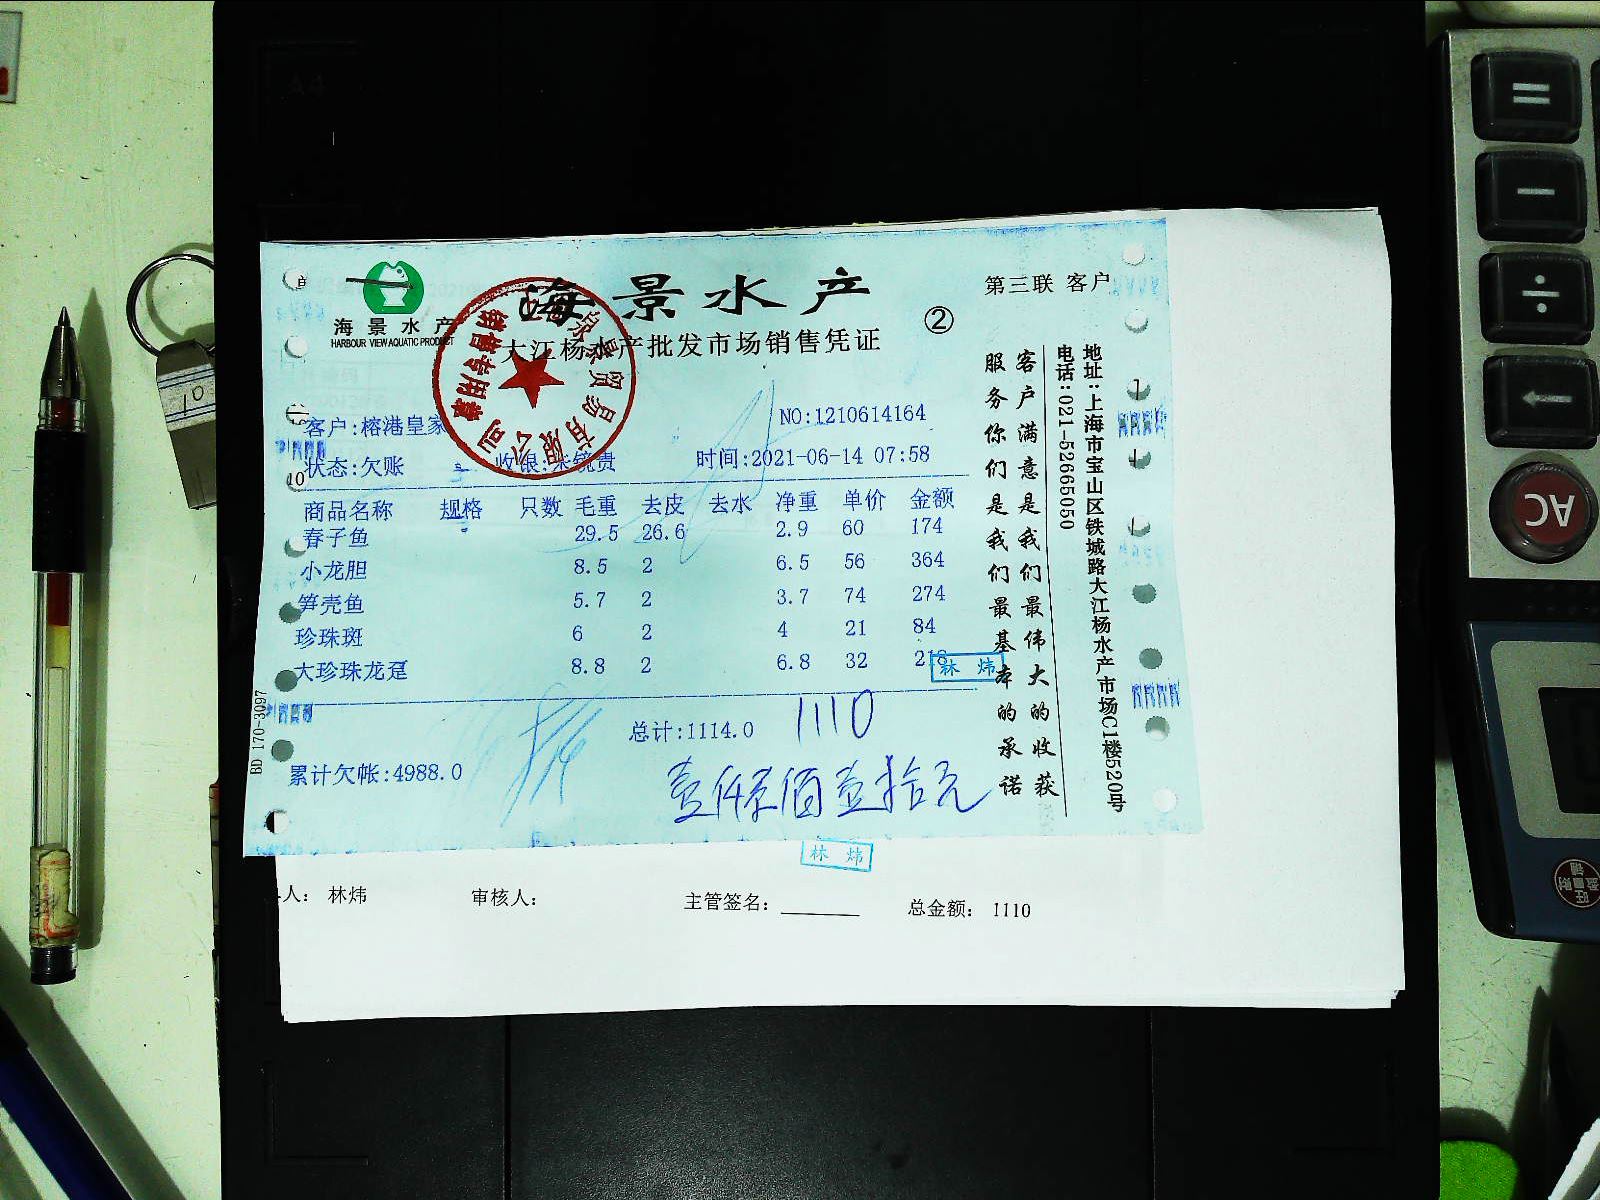 海景水产
HARBOUR VIEW AQUATIC PRODUCT
海景水产
大江杨水产批发市场销售凭证
②
第三联 客户
销售专用章
贸易有限公司
客户:榕港皇家
NO:1210614164
状态:欠账
收银:朱镜贵
时间:2021-06-14 07:58
商品名称 规格 只数 毛重 去皮 去水 净重 单价 金额
春子鱼 29.5 26.6 2.9 60 174
小龙胆 8.5 2 6.5 56 364
笋壳鱼 5.7 2 3.7 74 274
珍珠斑 6 2 4 21 84
大珍珠龙趸 8.8 2 6.8 32
林炜
总计:1114.0 1110
累计欠帐:4988.0
壹仟壹佰壹拾元
客户满意是我们最伟大的收获
服务你们是我们最基本的承诺
地址:上海市宝山区铁城路大江杨水产市场C1楼520号
电话:021-52665050
BD 170-3097
林炜
人: 林炜 审核人: 主管签名: 总金额: 1110
10
=
−
÷
←
AC